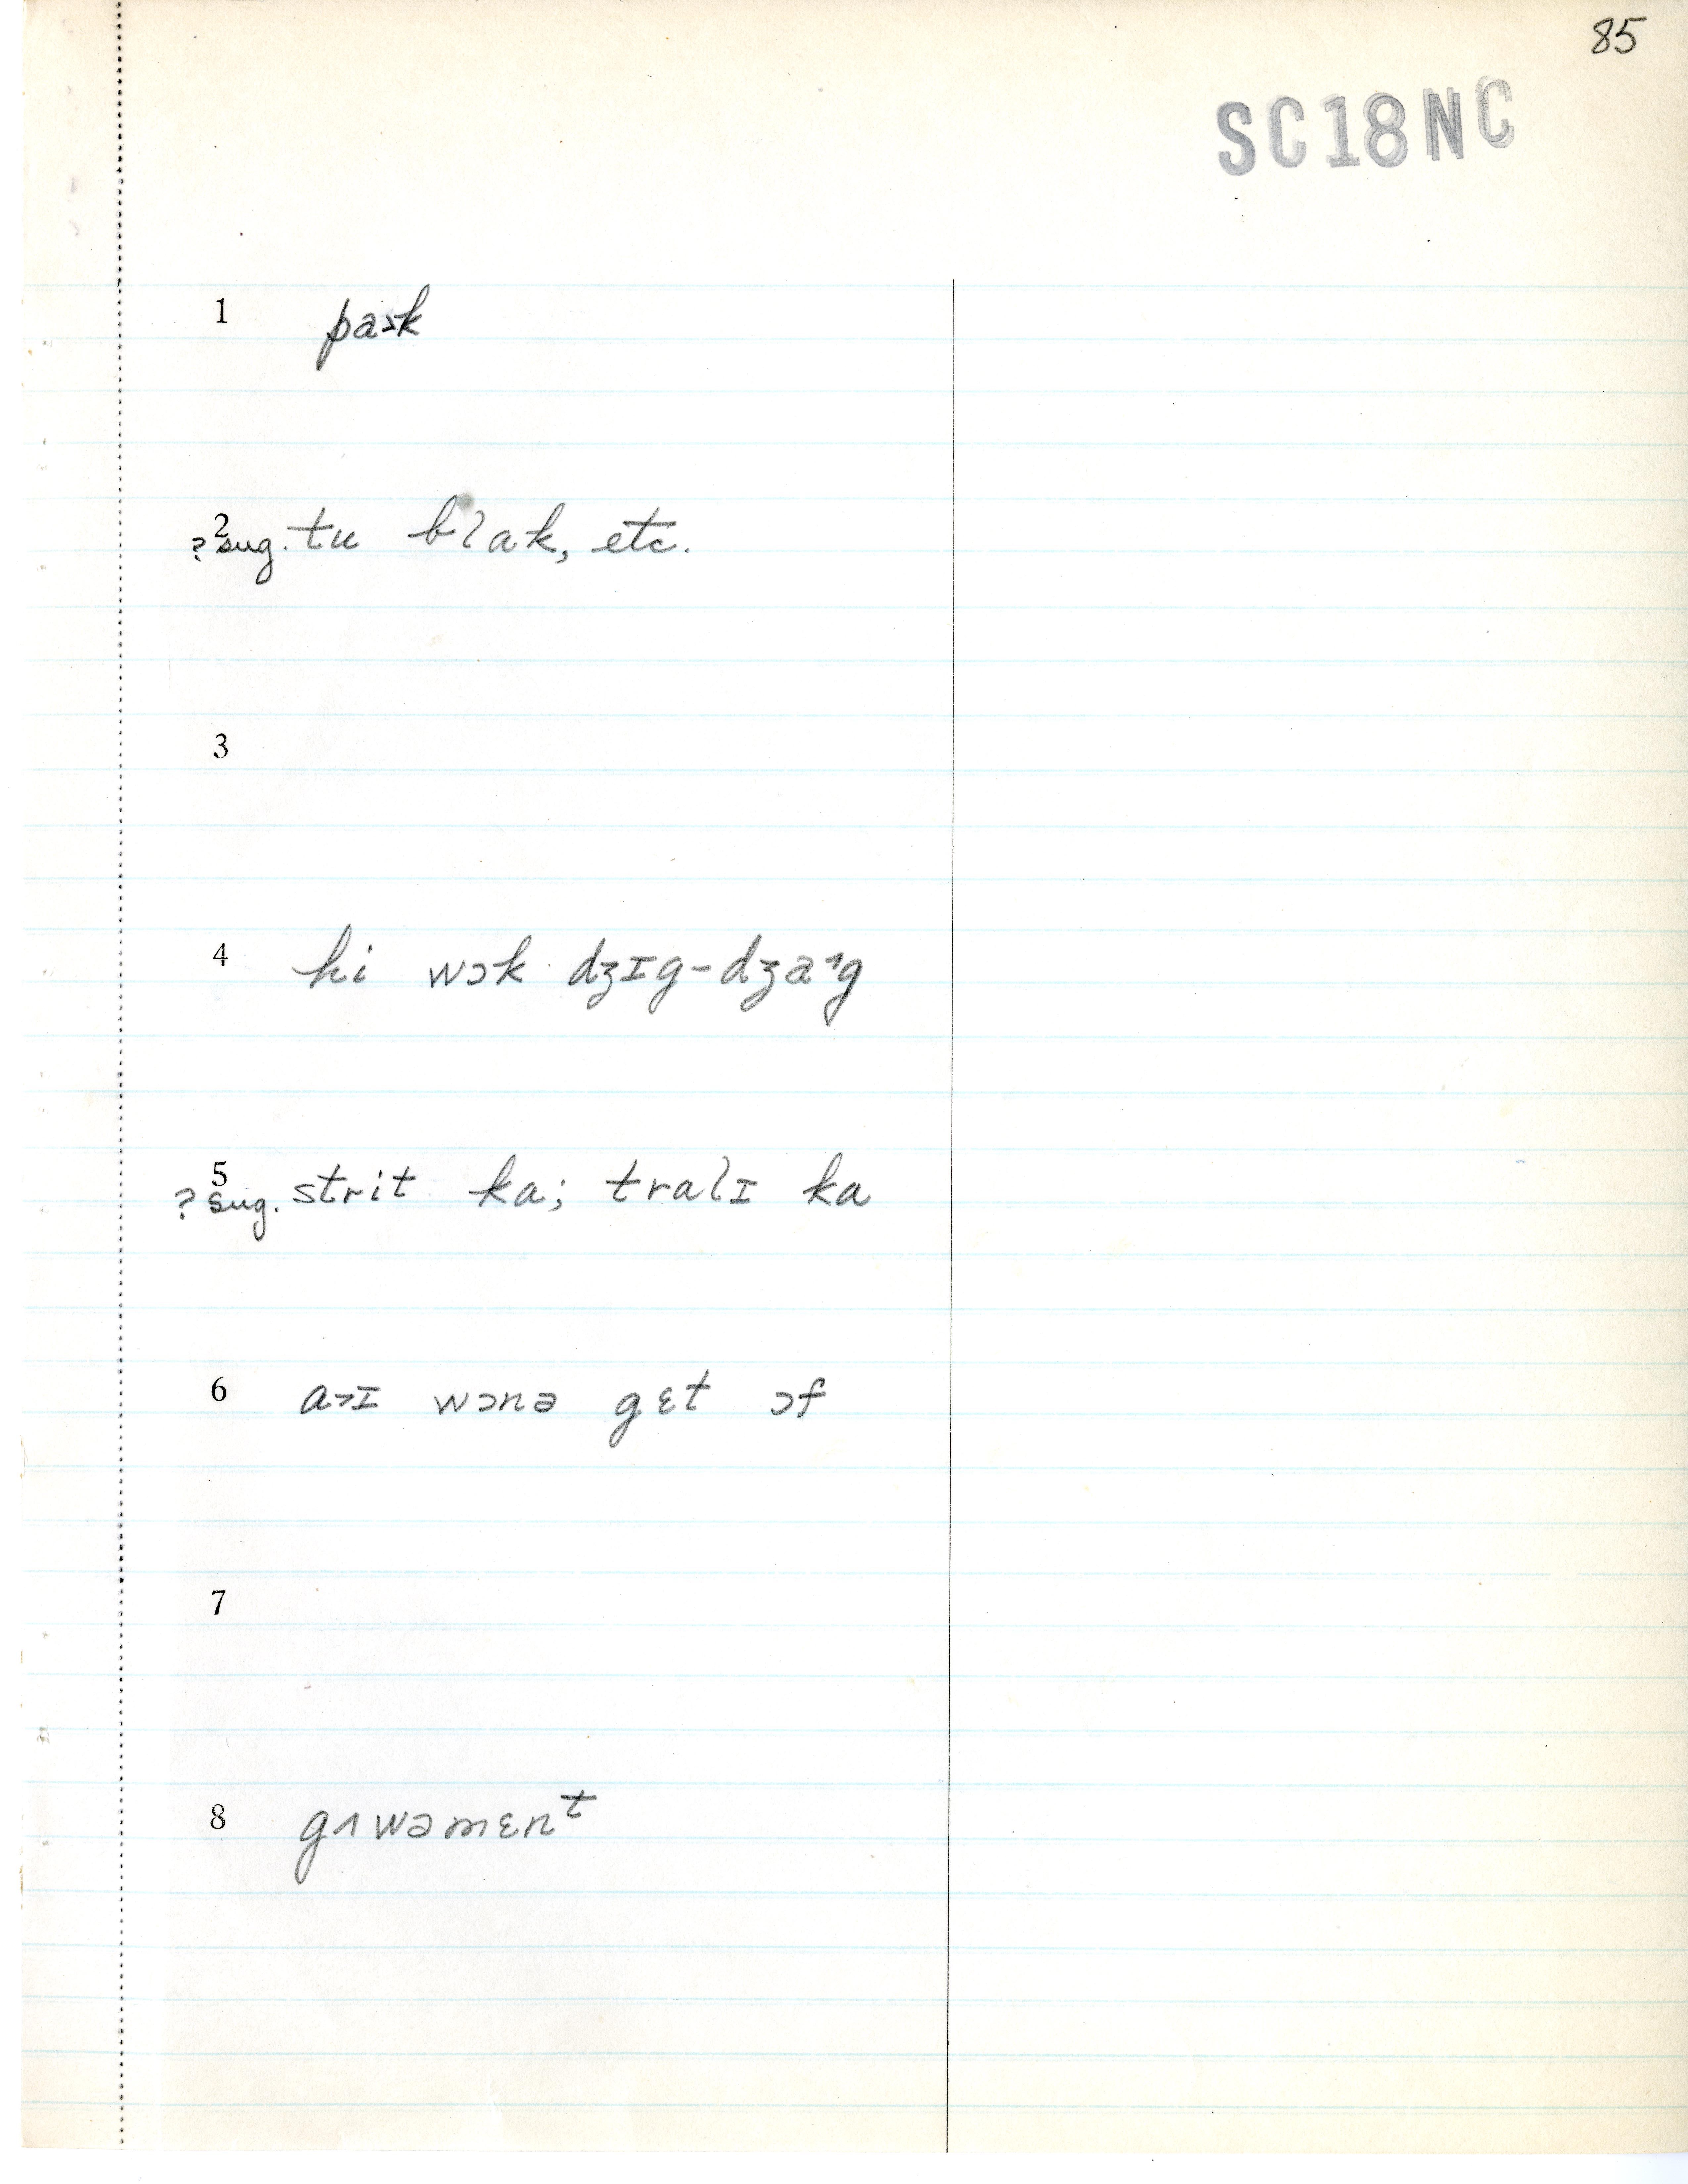 85
SC18NC
1 pa˃k
2 ?sug. tu blak, etc.
3
4 hi wɔk dʒɪg-dʒa˄g
5 ?sug. strit ka; tralɪ ka
6 a˃ɪ wɔnə gɛt ɔf
7
8 gʌwəmɛnᵗ